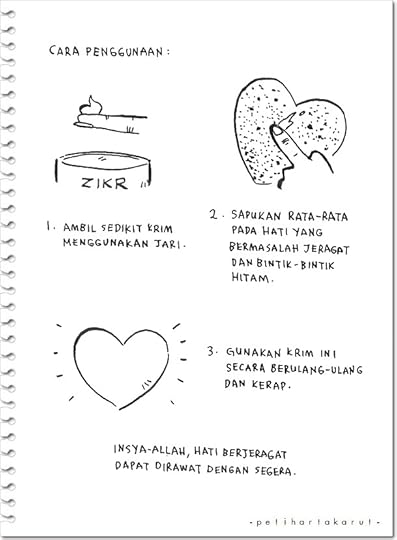 CARA PENGGUNAAN :
ZIKR
1. AMBIL SEDIKIT KRIM
MENGGUNAKAN JARI.
2. SAPUKAN RATA-RATA
PADA HATI YANG
BERMASALAH JERAGAT
DAN BINTIK-BINTIK
HITAM.
3. GUNAKAN KRIM INI
SECARA BERULANG-ULANG
DAN KERAP.
INSYA-ALLAH, HATI BERJERAGAT
DAPAT DIRAWAT DENGAN SEGERA.
-petihartakarut-